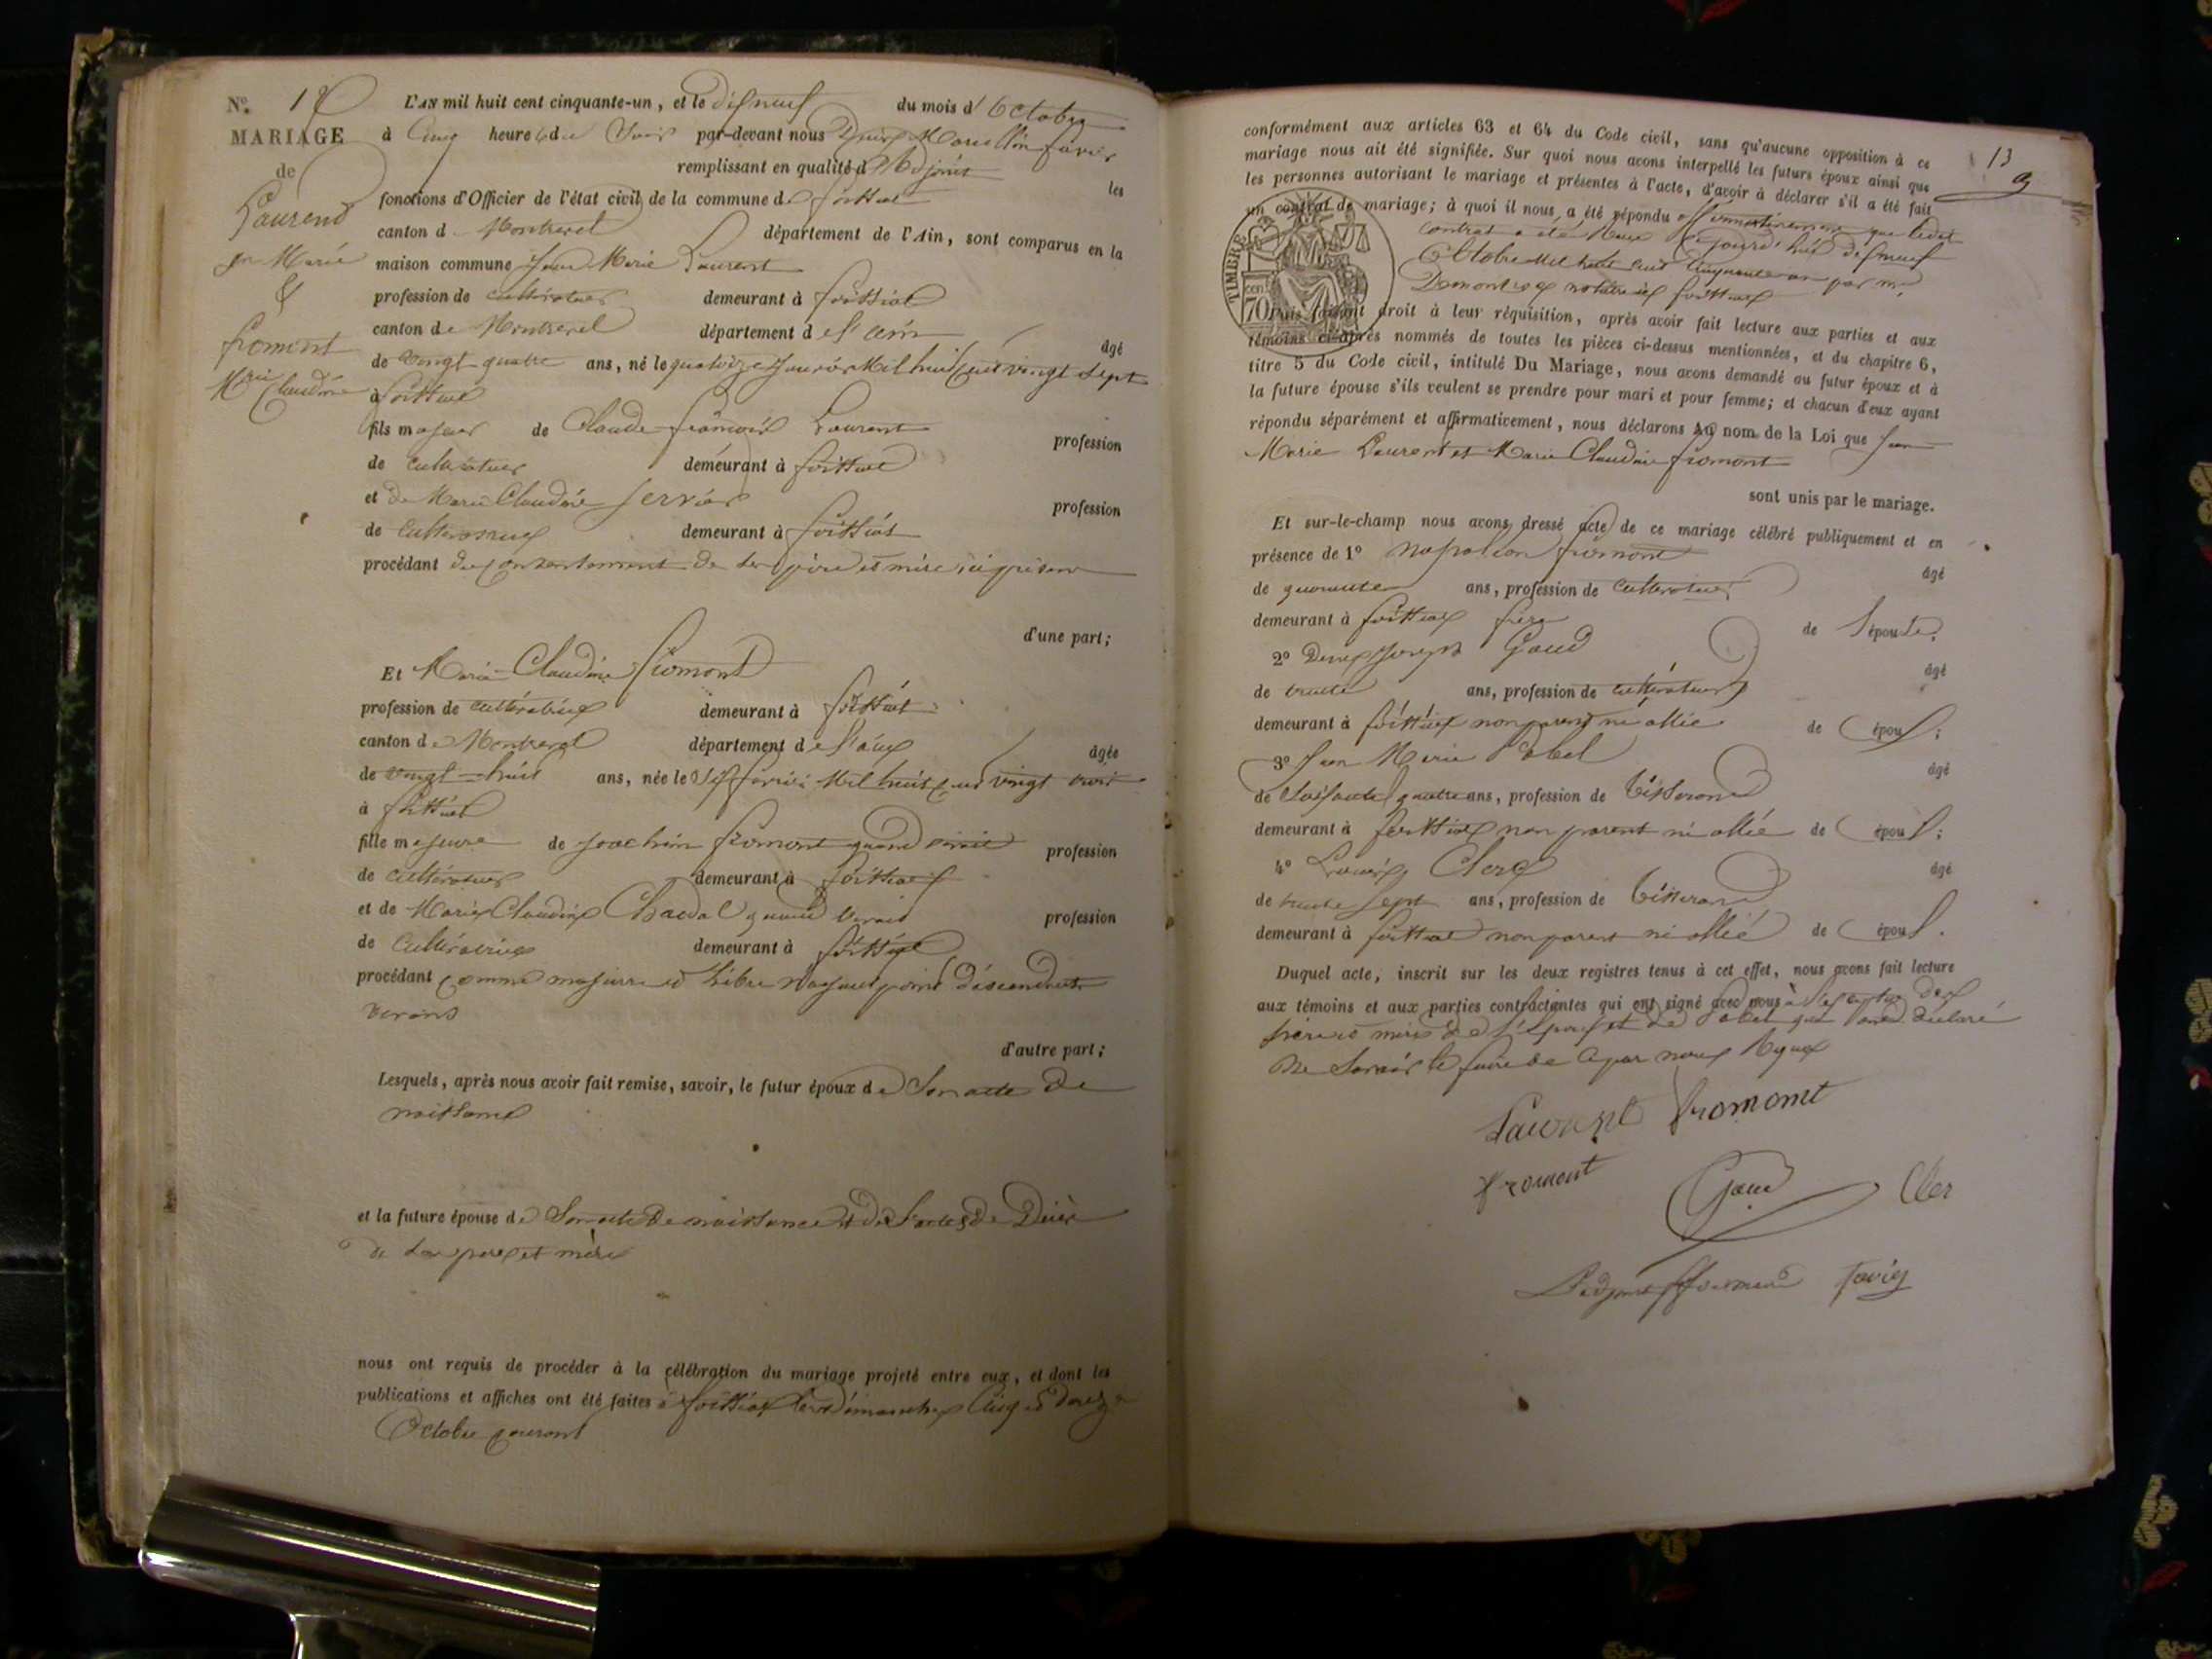 N.o
MARIAGE
de
Laurend
jn Marie
&
fromont
Mrie Claudine
L'AN mil huit cent cinquante-un, et le disneuf du mois d'Octobre
à Cinq heure du Soir par-devant nous Denis Marcellin favier
remplissant en qualité d'Adjoint les
fonctions d'Officier de l'état civil de la commune de foissiat
canton de Montrevel département de l'Ain, sont comparus en la
maison commune Jean Marie Laurent
profession de cultivateur demeurant à foissiat
canton de Montrevel département de l'ain âgé
de vingt quatre ans, né le quatorze Janvier Mil huit cent vingt sept
à foissiat
fils majeur de Claude françois Laurent profession
de cultivateur demeurant à foissiat
et de Marie Claudine Servier profession
de cultivatrice demeurant à foissiat
procédant du consentement de ses père et mère ici présens
d'une part;
Et Marie Claudine fromont
profession de cultivatrice demeurant à foissiat
canton de Montrevel département de l'ain âgée
de vingt-huit ans, née le février Mil huit cent vingt trois
à foissiat
fille majeure de Joachim fromont quand vivait profession
de cultivateur demeurant à foissiat
et de Marie Claudine Chardal quand vivait profession
de cultivatrice demeurant à foissiat
procédant comme majeure et libre n'ayant point d'ascendants
vivans
d'autre part;
Lesquels, après nous avoir fait remise, savoir, le futur époux de Son acte de
naissance
et la future épouse de Son acte de naissance et de l'actes de Décès
de ses père et mère
nous ont requis de procéder à la célébration du mariage projeté entre eux, et dont les
publications et affiches ont été faites à foissiat les dimanches Cinq et douze
Octobre courant
13
conformément aux articles 63 et 64 du Code civil, sans qu'aucune opposition à ce
mariage nous ait été signifiée. Sur quoi nous avons interpellé les futurs époux ainsi que
les personnes autorisant le mariage et présentes à l'acte, d'avoir à déclarer s'il a été fait
un contrat de mariage; à quoi il nous a été répondu affirmativement que ledit
contrat a été Reçu ce jourd'hui disneuf
Octobre Mil huit cent Cinquante un par Me
notaire à foissiat
TIMBRE
70 cen
Puis faisant droit à leur réquisition, après avoir fait lecture aux parties et aux
témoins ci-après nommés de toutes les pièces ci-dessus mentionnées, et du chapitre 6,
titre 5 du Code civil, intitulé Du Mariage, nous avons demandé au futur époux et à
la future épouse s'ils veulent se prendre pour mari et pour femme; et chacun d'eux ayant
répondu séparément et affirmativement, nous déclarons AU nom de la Loi que Jean
Marie Laurent et Marie Claudine fromont
sont unis par le mariage.
Et sur-le-champ nous avons dressé acte de ce mariage célébré publiquement et en
présence de 1o Napoléon fromont âgé
de quarante ans, profession de cultivateur
demeurant à foissiat frère de l'épouse.
2o Denis Joseph Gaud âgé
de trente ans, profession de cultivateur
demeurant à foissiat non parent ni allié de épous;
3o Jean Marie Pobel âgé
de Soissante quatre ans, profession de tisserand
demeurant à foissiat non parent ni allié de épous;
4o Clerc âgé
de trente sept ans, profession de tisserand
demeurant à foissiat non parent ni allié de épous.
Duquel acte, inscrit sur les deux registres tenus à cet effet, nous avons fait lecture
aux témoins et aux parties contractantes qui ont signé avec nous à l'exception des
père et mère de l'Epous et de Pobel qui ont déclaré
ne Savoir le faire de ce par nous Requis
Laurent fromont
fromont
Gaud
Cler
L'adjoint favier